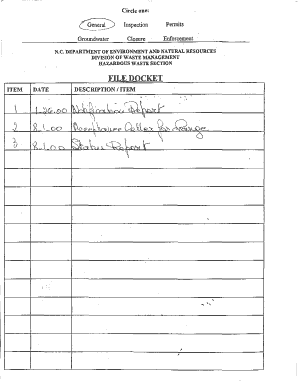 Circle one:
General Inspection Permits
Groundwater Closure Enforcement
N.C. DEPARTMENT OF ENVIRONMENT AND NATURAL RESOURCES
DIVISION OF WASTE MANAGEMENT
HAZARDOUS WASTE SECTION
FILE DOCKET
ITEM DATE DESCRIPTION / ITEM
1 1.26.00 Notification Report
2 8.1.00 Acceptance Letter for Change
3 8.1.00 Status Report